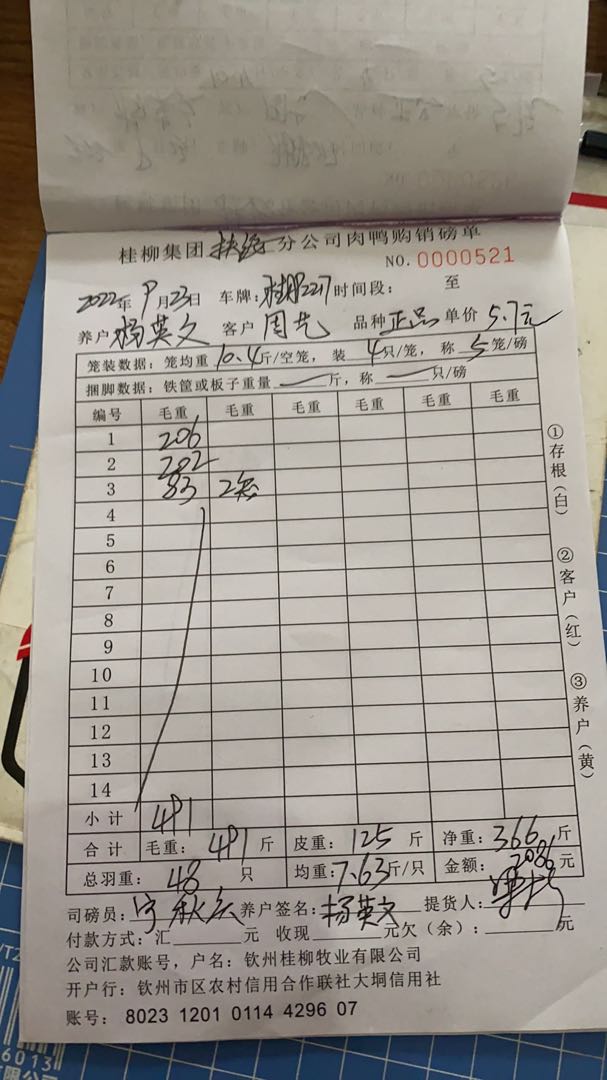 桂柳集团扶绥分公司肉鸭购销磅单
NO. 0000521
2022年9月23日 车牌: 时间段: 至
养户 杨英文 客户 周艺 品种 正品 单价 5.7元
笼装数据: 笼均重 10.4 斤/空笼, 装 4 只/笼, 称 5 笼/磅
捆脚数据: 铁筐或板子重量 — 斤, 称 — 只/磅
编号 毛重 毛重 毛重 毛重 毛重 毛重
1 206
2 202
3 83 2笼
4
5
6
7
8
9
10
11
12
13
14
小计 491
合计 毛重: 491 斤 皮重: 125 斤 净重: 366 斤
总羽重: 48 只 均重: 7.63 斤/只 金额: 2086 元
司磅员: 养户签名: 杨英文 提货人:
付款方式: 汇 元 收现 元欠(余): 元
公司汇款账号, 户名: 钦州桂柳牧业有限公司
开户行: 钦州市区农村信用合作联社大垌信用社
账号: 8023 1201 0114 4296 07
①存根(白) ②客户(红) ③养户(黄)
6013
有限公司